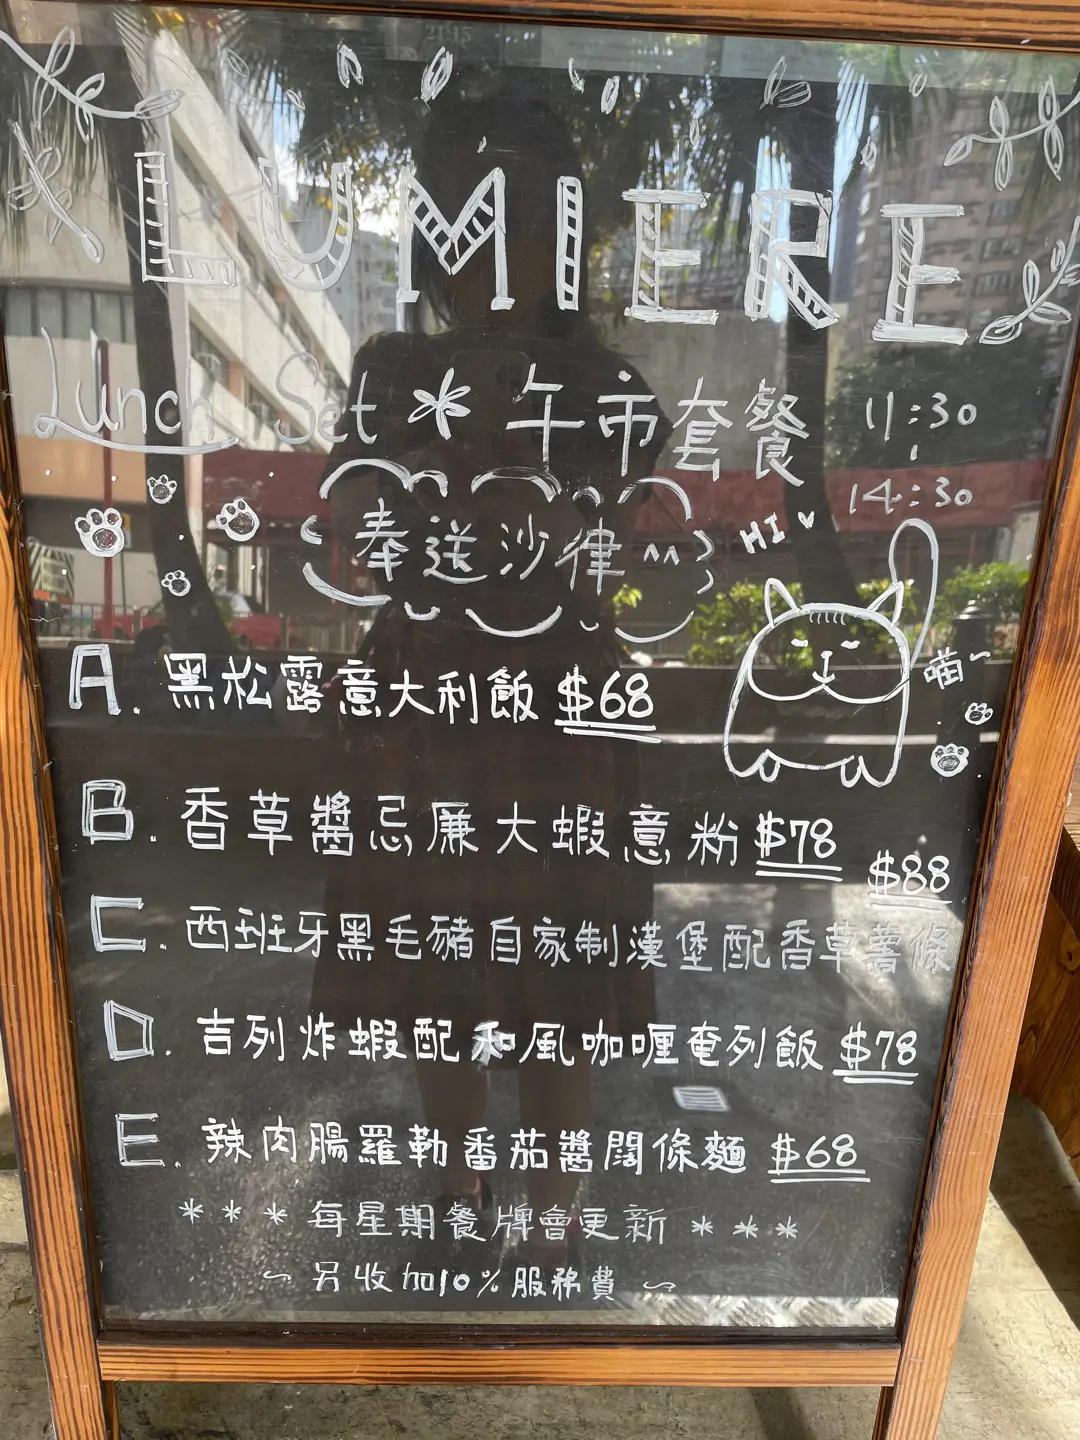 LUMIERE
Lunch Set * 午市套餐 11:30
14:30
奉送沙律 ^^
HI
喵~
A. 黑松露意大利飯 $68
B. 香草醬忌廉大蝦意粉 $78
$88
C. 西班牙黑毛豬自家制漢堡配香草薯條
D. 吉列炸蝦配和風咖喱奄列飯 $78
E. 辣肉腸羅勒番茄醬闊條麵 $68
*** 每星期餐牌會更新 ***
~ 另收加10%服務費 ~